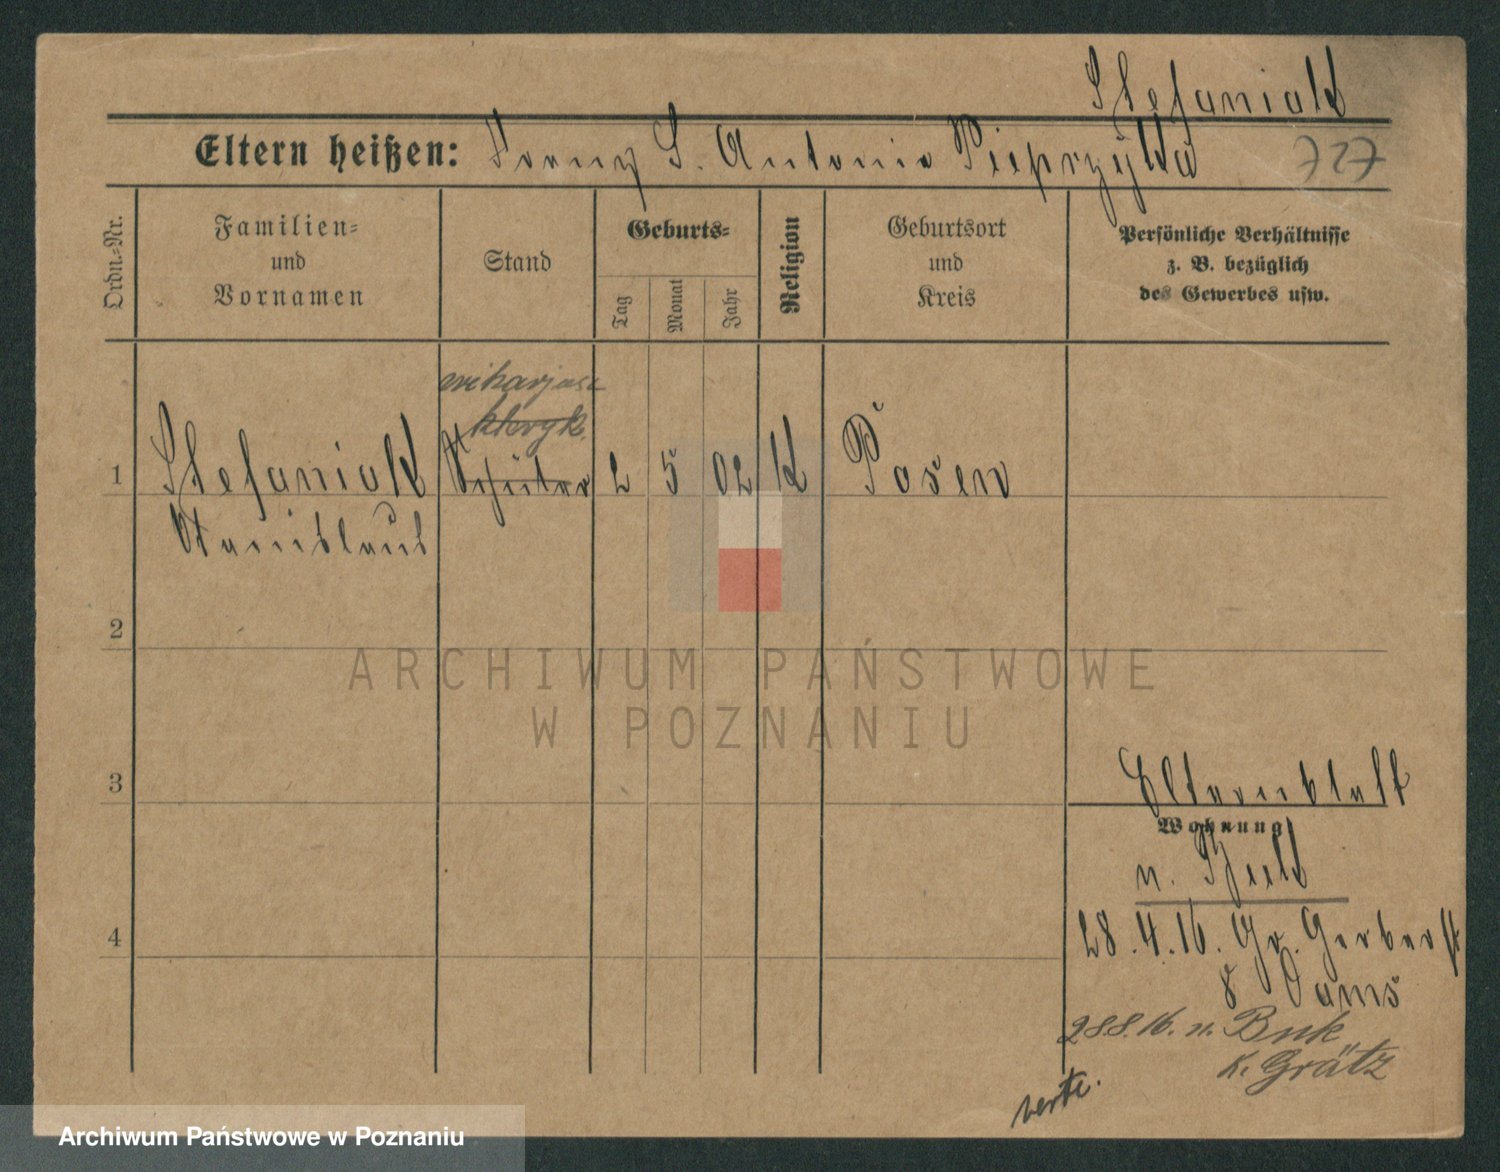 Stefaniak
Eltern heißen: Franz S. Antonie Pieprzyka
727
Ordn.-Nr.
Familien-
und
Vornamen
Stand
Geburts-
Tag
Monat
Jahr
Religion
Geburtsort
und
Kreis
Persönliche Verhältnisse
z. B. bezüglich
des Gewerbes usw.
wikarjusz
kleryk
1 Stefaniak Schüler 2 5 02 K Posen
Stanislaus
2
3
4
Elternblatt
Wohnung
n.
28.4.16. Gr. Gerberst
8 Dams
28.8.16. n. Buk
K. Grätz
verte.
ARCHIWUM PAŃSTWOWE
W POZNANIU
Archiwum Państwowe w Poznaniu